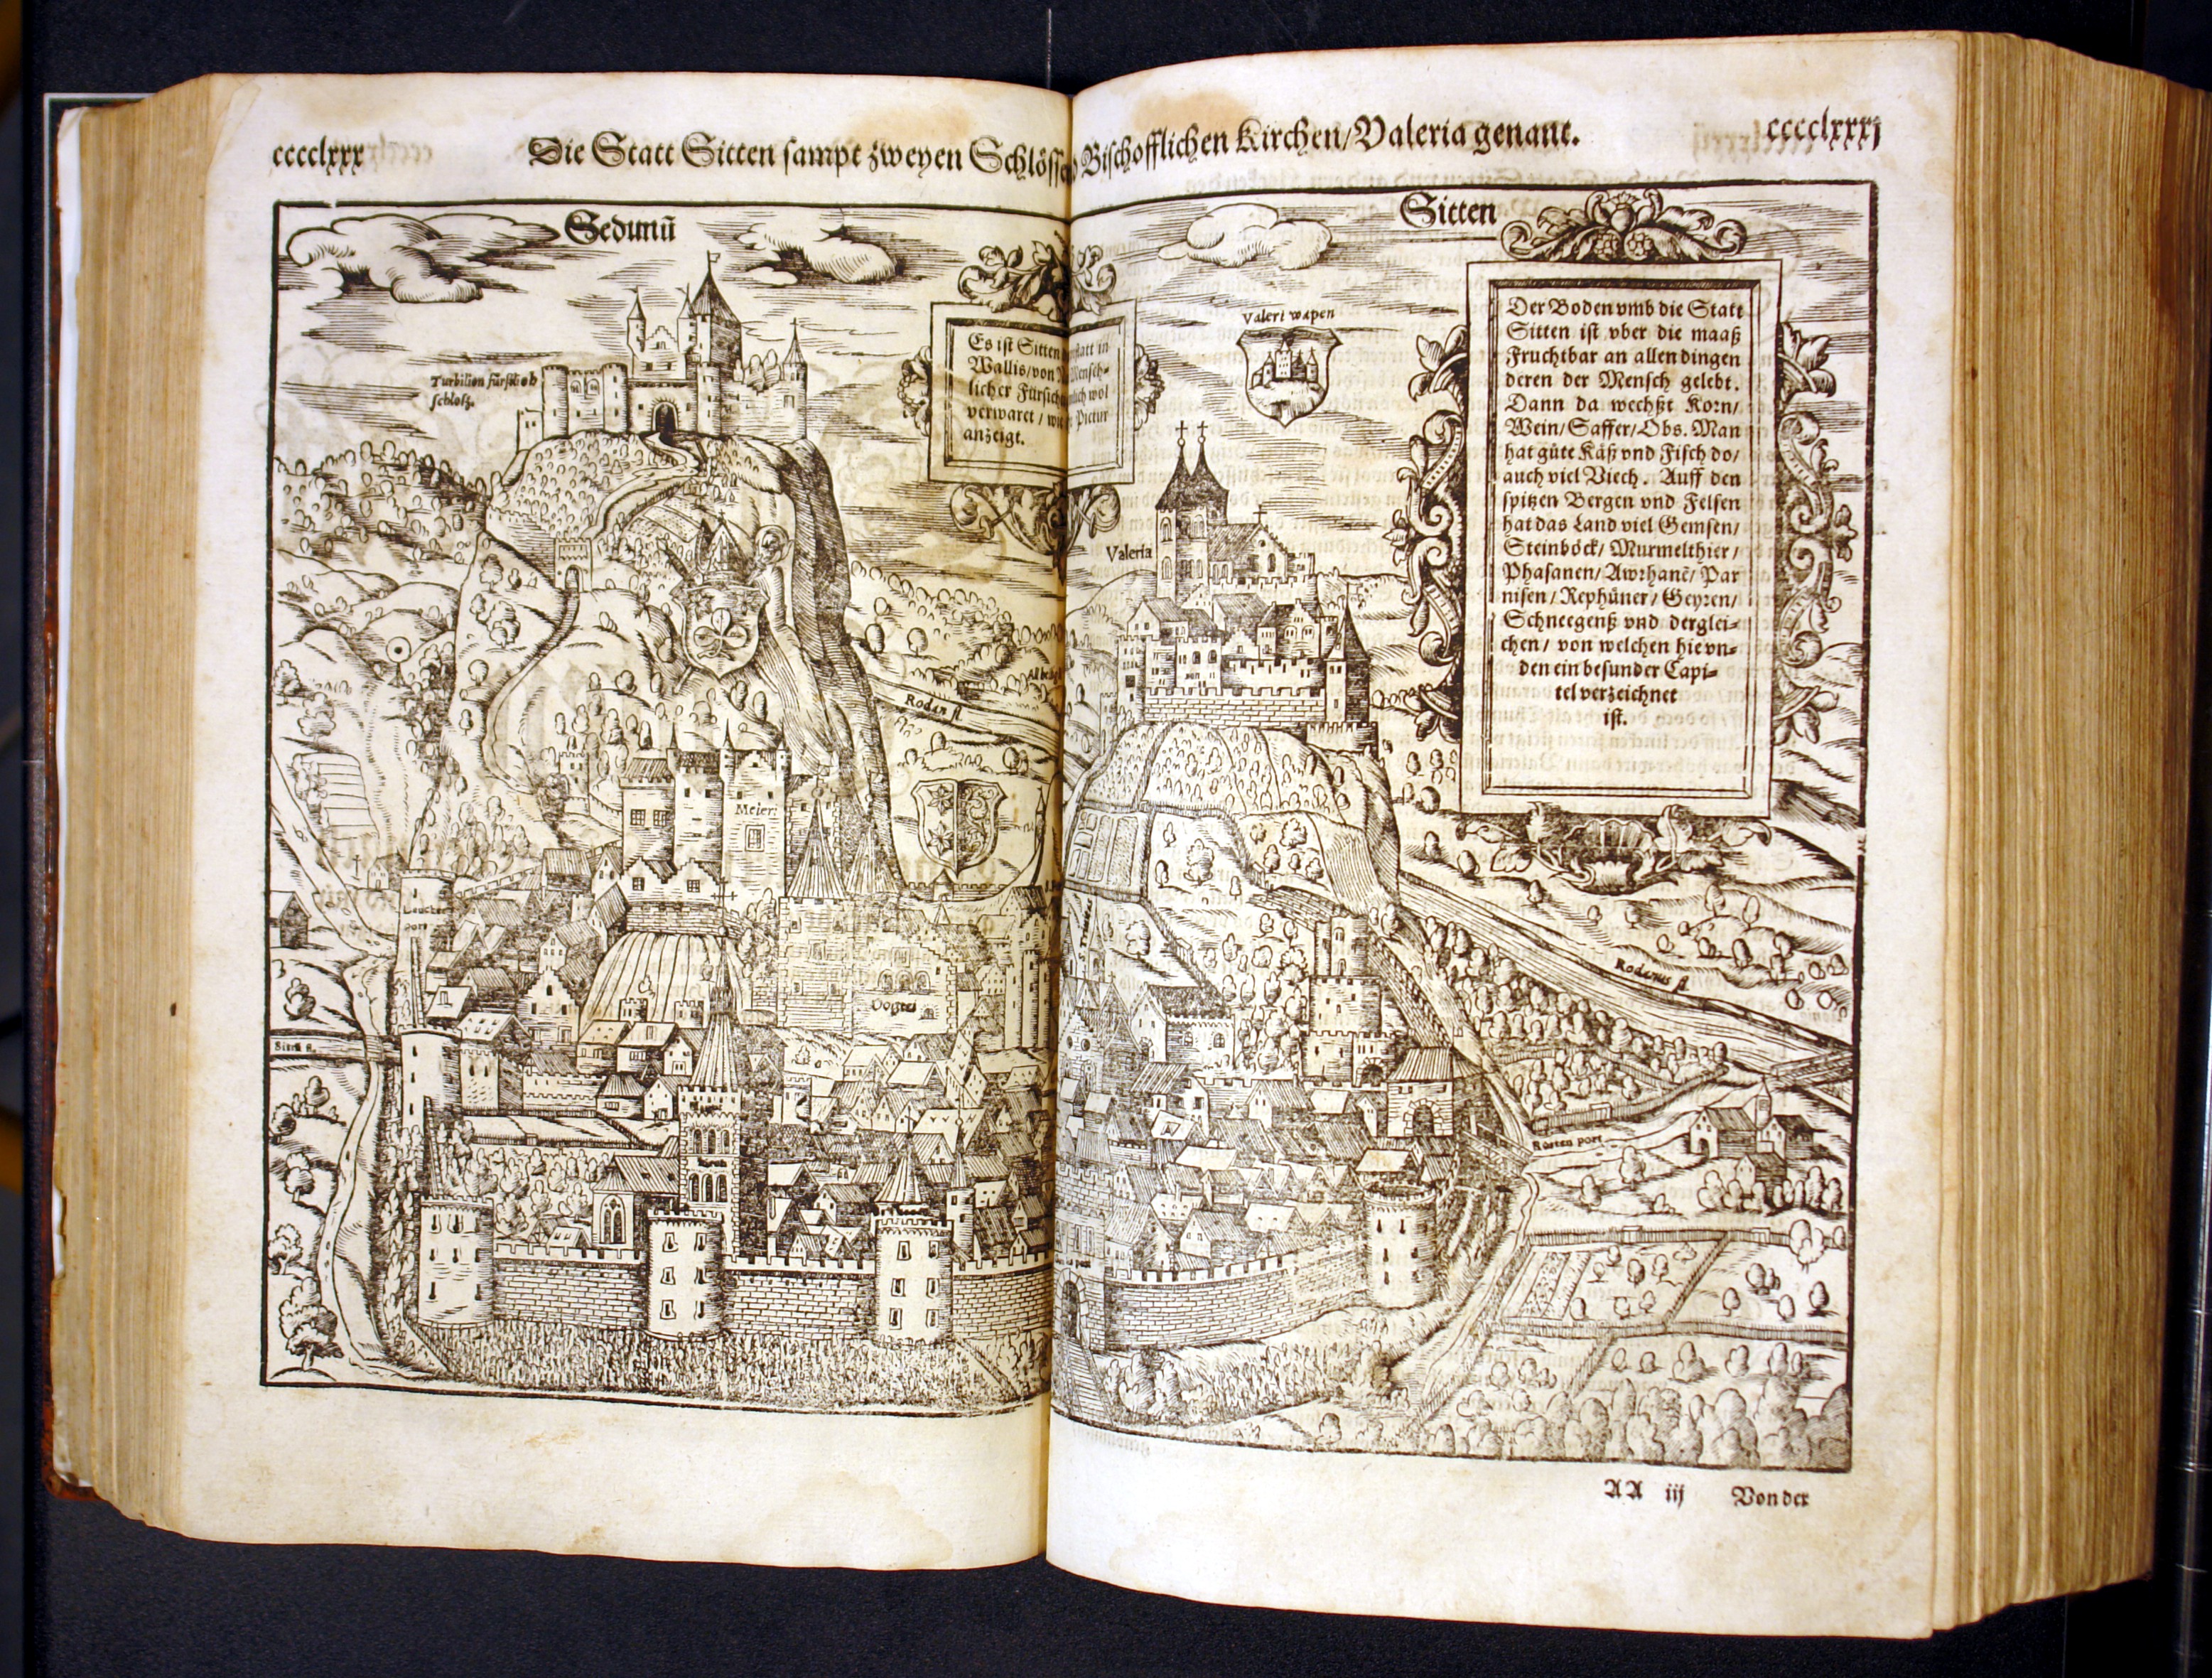 cccclxxx
Die Statt Sitten sampt zweyen Schlöss Bischofflichen Kirchen/Valeria genant.
cccclxxxj
Sedunū
Sitten
Turbilion fürstlich
schlosz.
Es ist Sitten in
Wallis/von Mensch-
licher Fürsich wol
verwaret / wie Pictur
anzeigt.
Valeri wapen
Valeria
Der Boden vmb die Statt
Sitten ist vber die maaß
Fruchtbar an allen dingen
deren der Mensch gelebt.
Dann da wechßt Korn/
Wein/Saffer/Obs. Man
hat gůte Käß vnd Fisch do/
auch viel Viech. Auff den
spitzen Bergen vnd Felsen
hat das Land viel Gemsen/
Steinböck/ Murmelthier/
Phasanen/Awrhanē/Par
nisen/Rephüner/Geyren/
Schneegenß vnd derglei-
chen/ von welchen hie vn-
den ein besunder Capi-
tel verzeichnet
ist.
Rodan fl.
Meieri
Leucker
port
Vogtei
Rodanus fl.
Sitta fl.
Rosten port
AA iij Von der